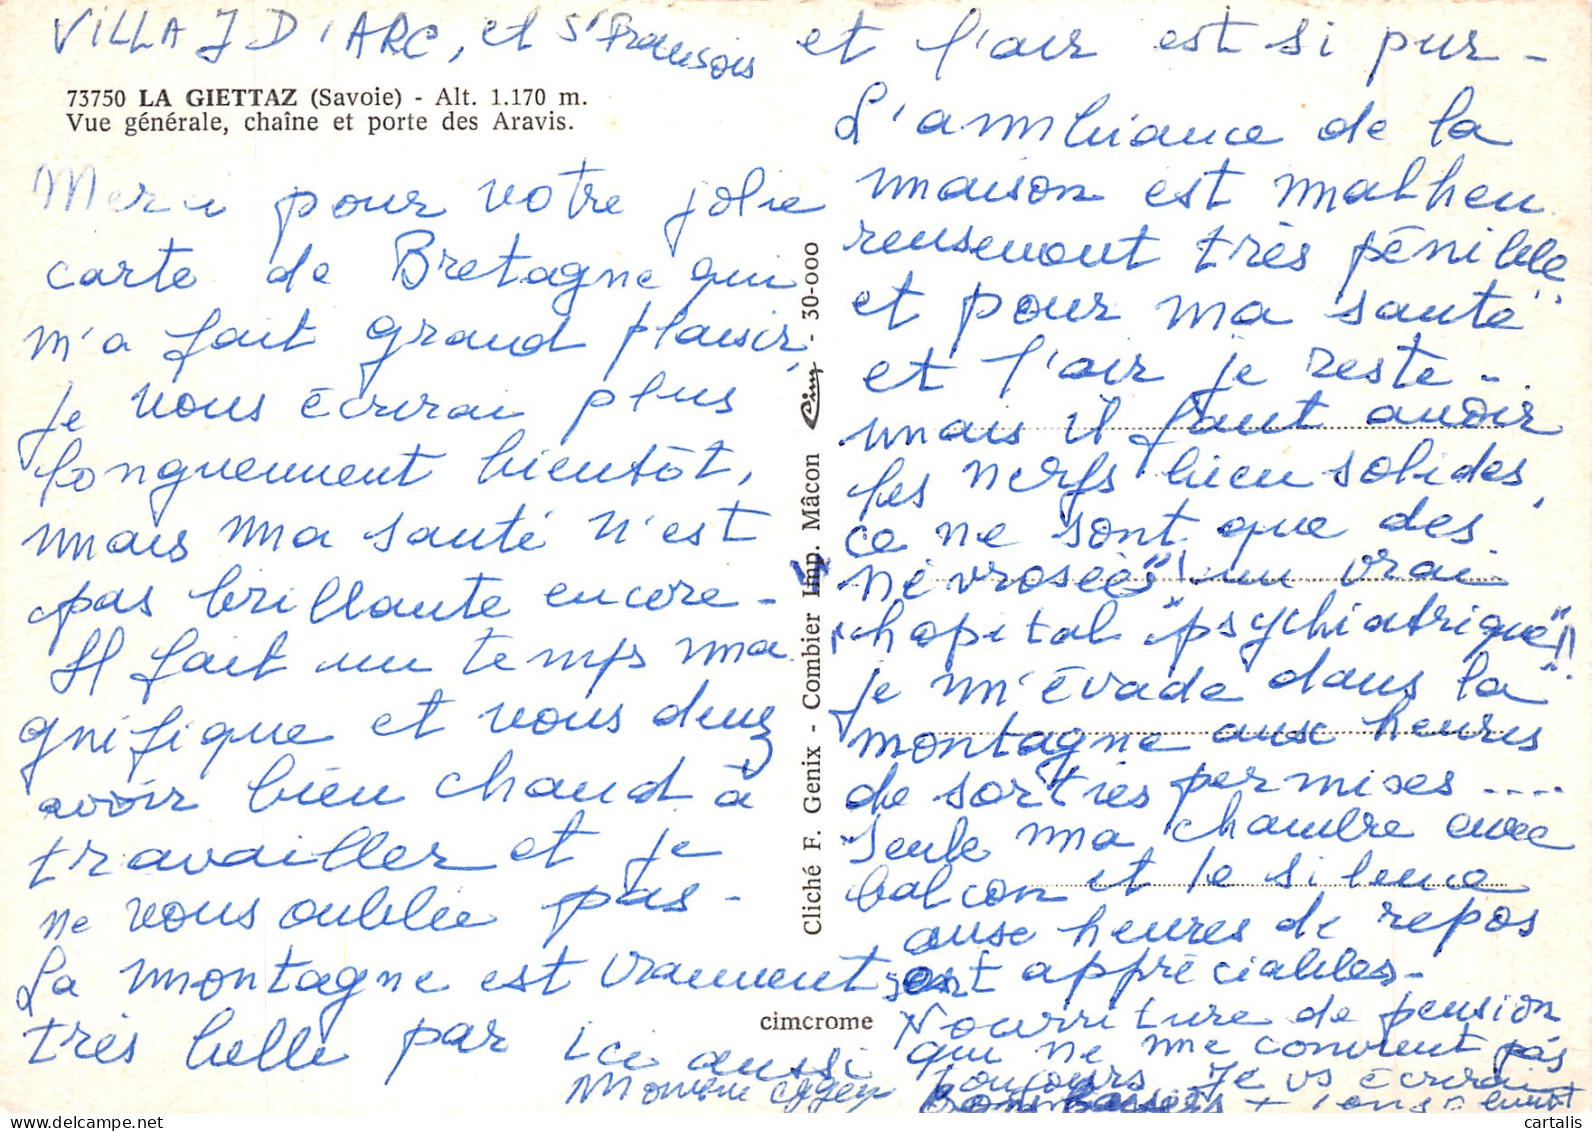 VILLA J D'ARC, et St François
73750 LA GIETTAZ (Savoie) - Alt. 1.170 m.
Vue générale, chaîne et porte des Aravis.
Merci pour votre jolie
carte de Bretagne qui
m'a fait grand plaisir,
je vous écrirai plus
longuement bientôt,
mais ma santé n'est
pas brillante encore -
Il fait un temps ma
gnifique et vous devez
avoir bien chaud à
travailler et je
ne vous oublie pas -
La montagne est vraiment
très belle par ici aussi
et l'air est si pur -
L'ambiance de la
maison est malheu
reusement très pénible
et pour ma santé
et l'air je reste -
mais il faut avoir
les nerfs bien solides,
ce ne sont que des
névrosées"! un vrai
hopital "psychiatrique"!!
je m'évade dans la
montagne aux heures
de sorties permises ....
Seule ma chambre avec
balcon et le silence
aux heures de repos
sont appréciables -
Nourriture de pension
qui ne me convient pas
toujours. Je vs écrirai
Bons Baisers + long. bientôt
Cliché F. Genix - Combier Imp. Mâcon Cim - 30-000
cimcrome
cartalis